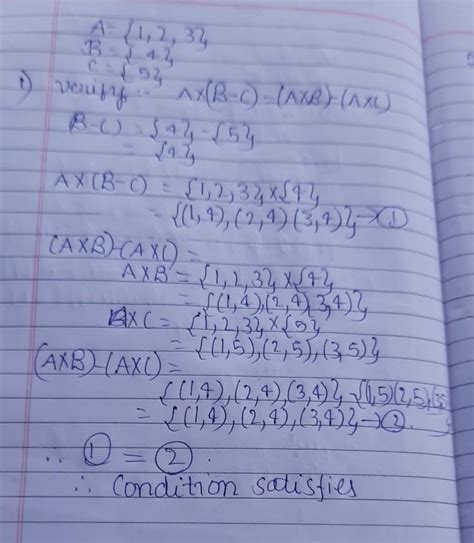 A = {1, 2, 3},
B = {4},
C = {5},
1) verify :- A×(B-C) = (A×B)-(A×C)
B-C) = {4} - {5},
= {4},
A×(B-C) = {1, 2, 3}×{4},
= {(1,4), (2,4) (3,4)} → ①
(A×B)-(A×C) =
A×B = {1, 2, 3} × {4},
= {(1,4) (2,4) 3,4)},
A×C = {1, 2, 3}, × {5},
= {(1,5), (2,5), (3,5)},
(A×B)-(A×C) =
{(1,4), (2,4), (3,4)}, - {(1,5) (2,5), (3,5
= {(1,4), (2,4), (3,4)} → ②.
∴ ① = ② .
∴ Condition satisfies